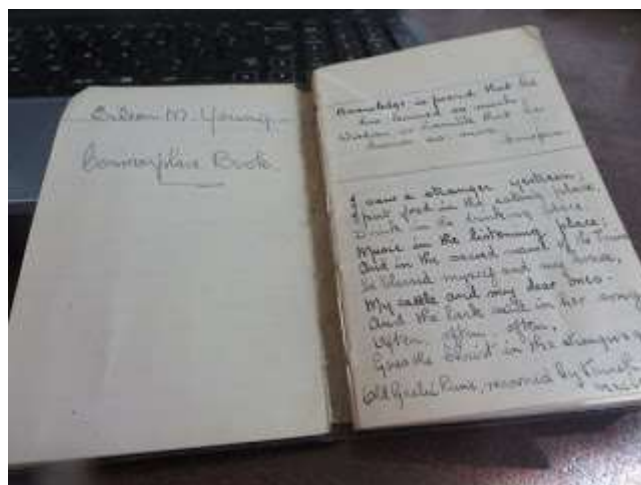 M. Young
Commonplace Book.
Knowledge is proud that he
has learned so much
Wisdom is humble that he
knows no more.
I saw a stranger yestreen;
I put food in the eating place,
Drink in the drinking place
Music in the listening place;
And in the sacred name of the Triune
He blessed myself and my house,
My cattle and my dear ones.
And the lark said in her song
Often, often, often,
Goes the Christ in the stranger's
Old Gaelic Rune, recovered by